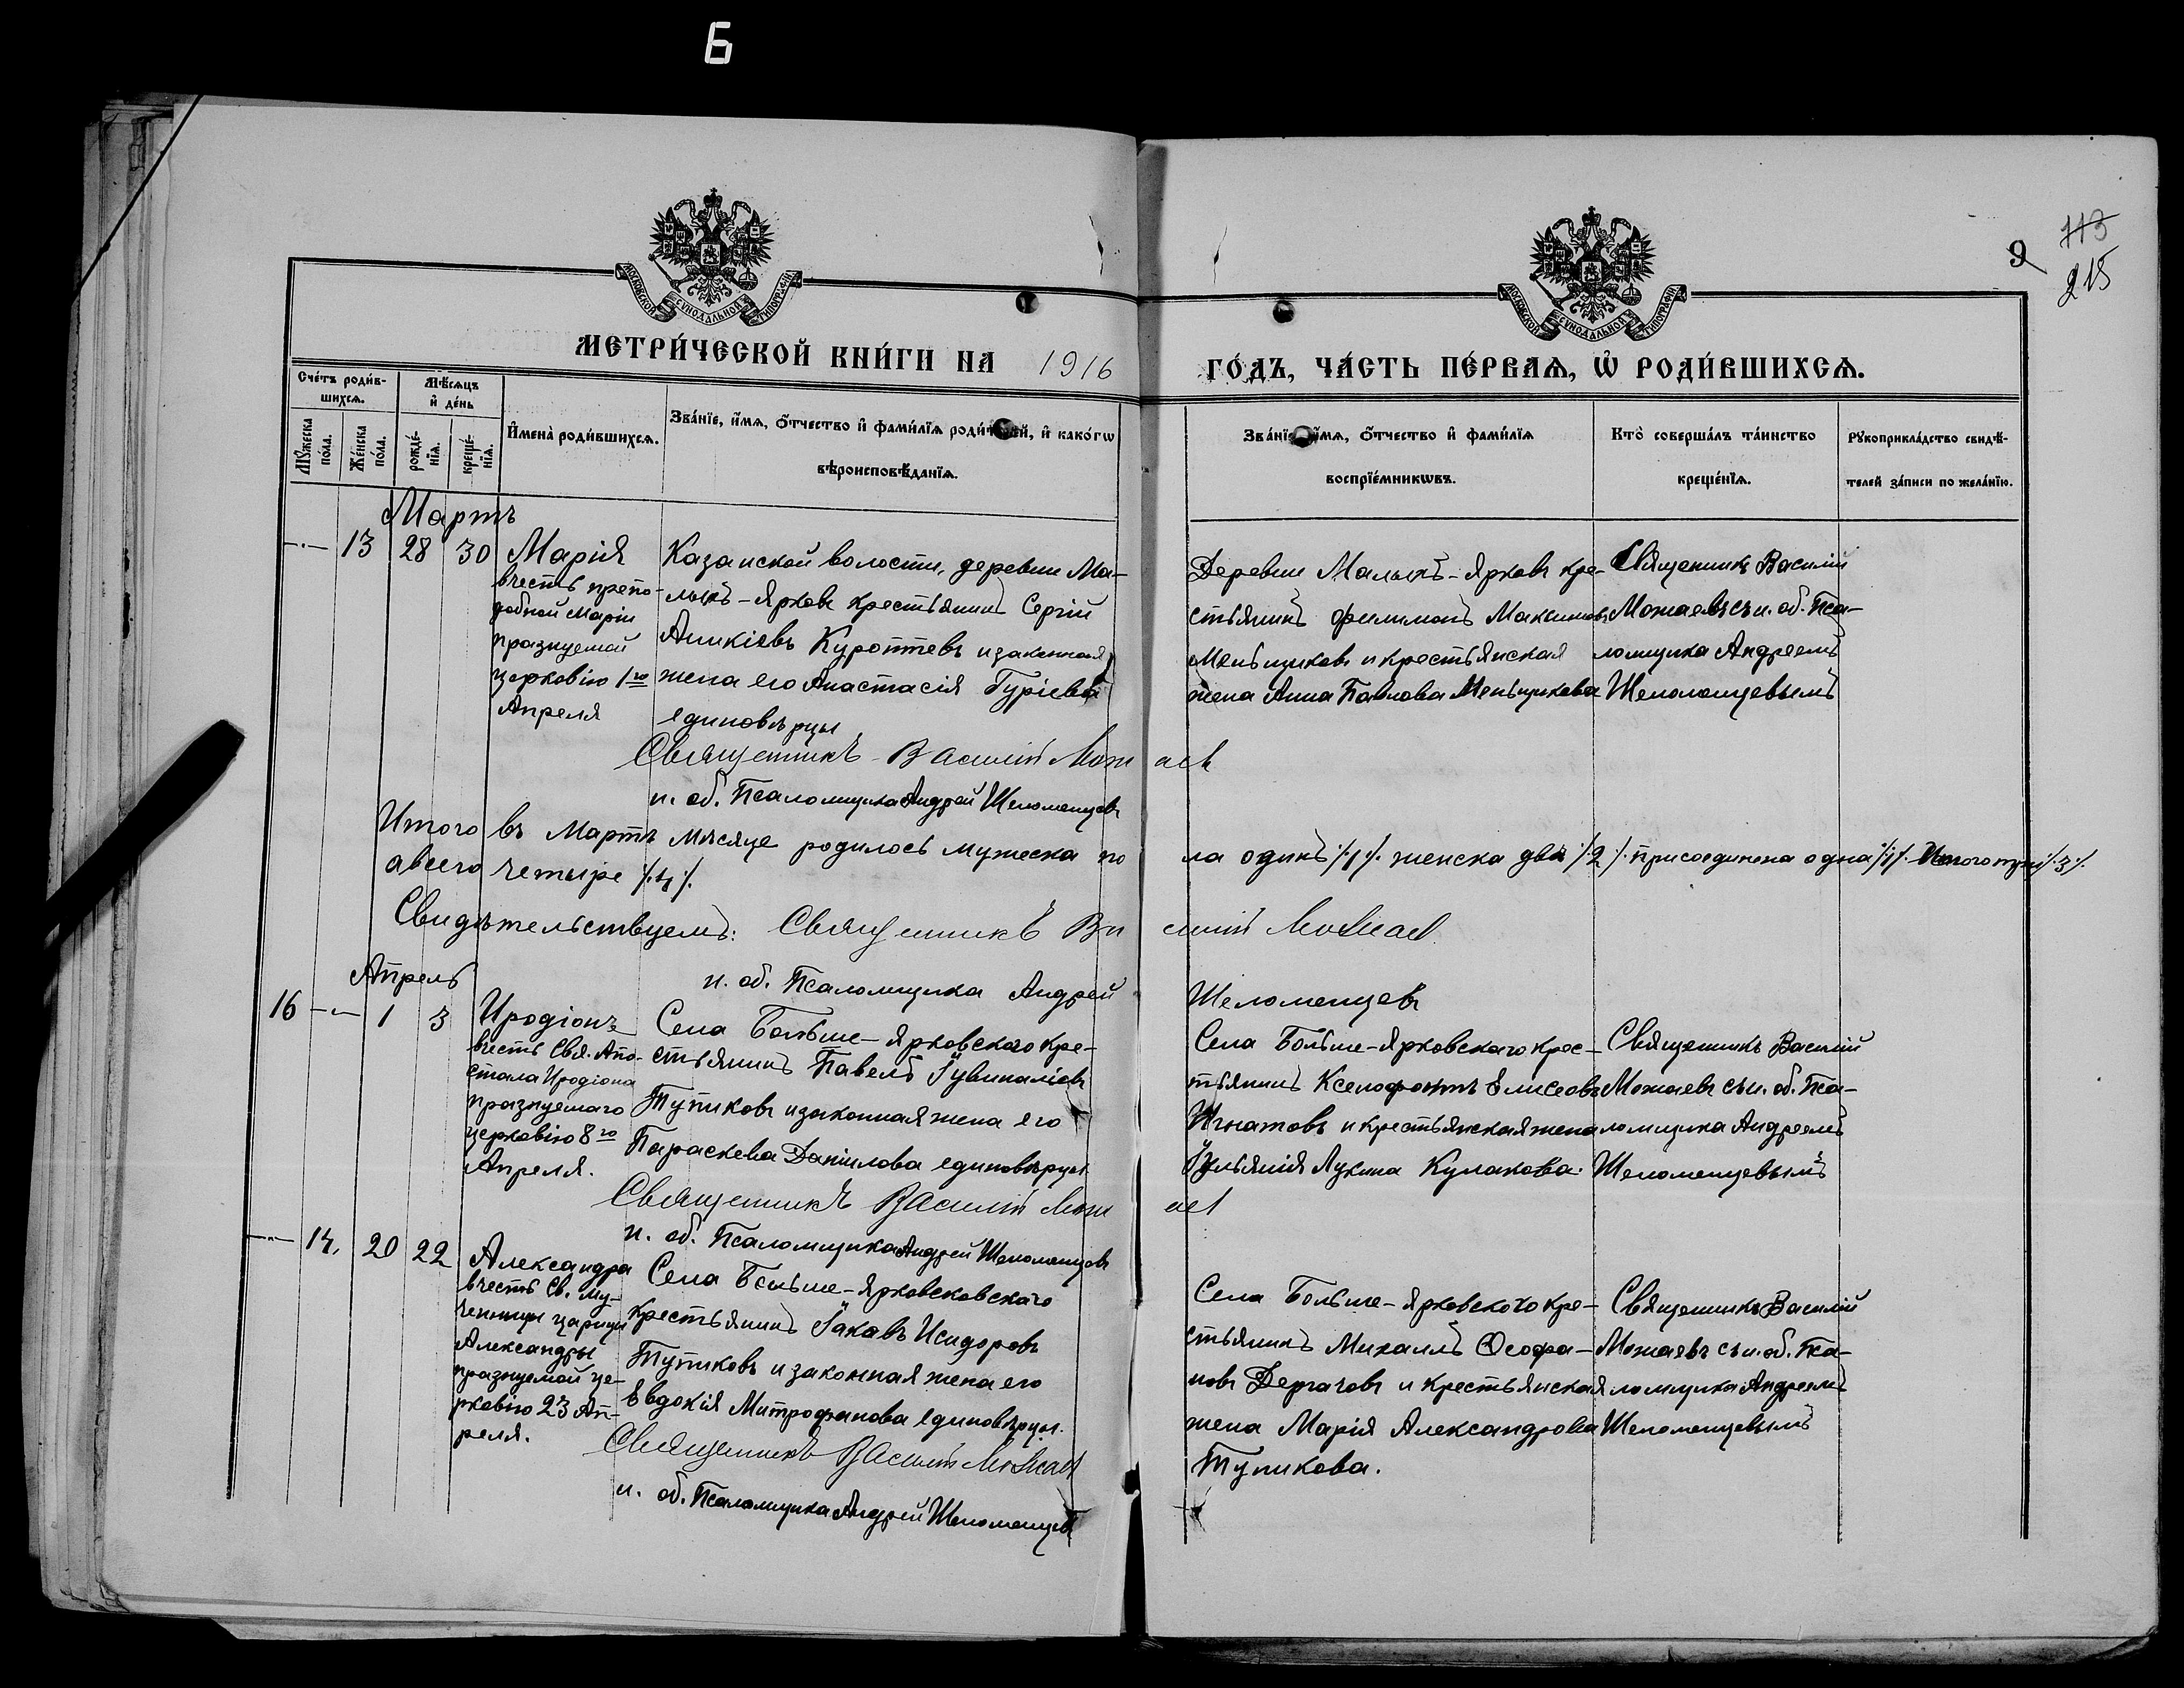 Б
МОСКОВСКОЙ СѴНОДАЛЬНОЙ ТИПОГРАФІИ
МОСКОВСКОЙ СѴНОДАЛЬНОЙ ТИПОГРАФІИ
9
113
215
МЕТРИ́ЧЕСКОЙ КНИ́ГИ НА 1916 ГО́ДЪ, ЧА́СТЬ ПЕ́РВАѦ, Ѡ҆ РОДИ́ВШИХСѦ.
Сче́тъ роди́в-
шихсѧ.
Мѣ́сѧцъ
и҆ де́нь
Мꙋ́жеска
по́ла.
Же́нска
по́ла.
рожде́-
нїѧ.
креще́-
нїѧ.
И҆мена̀ роди́вшихсѧ.
Зва́нїе, и҆́мѧ, ѻ҆́тчество и҆ фами́лїѧ роди́телей, и҆ како́гѡ
вѣроисповѣ́данїѧ.
Зва́нїе, и҆́мѧ, ѻ҆́тчество и҆ фами́лїѧ
воспрїе́мникѡвъ.
Кто̀ соверша́лъ та́инство
креще́нїѧ.
Рꙋкоприкла́дство свидѣ́-
телей за́писи по жела́нїю.
Мартъ
13 28 30
Марія
въ честь препо-
добной Маріи
празнуемой
церковію 1го
Апреля
Казанской волости, деревни Ма-
лыхъ-Ярковъ крестьянинъ Сергій
Аникіевъ Куроптевъ и законная
жена его Анастасія Гуріева
единовѣрцы
Деревни Малыхъ-Ярковъ кре-
стьянинъ Филимонъ Максимовъ
Меньщиковъ и крестьянская
жена Анна Павлова Меньщикова
Священникъ Василій
Можаевъ съ и. об. Пса-
ломщика Андреемъ
Шеломенцевымъ
Священникъ Василій Можаевъ
и. об. Псаломщика Андрей Шеломенцевъ
Итого въ Мартѣ мѣсяце родилось мужеска пола одинъ /.1/. женска две /.2/. присоединена одна /.1/. Итого три /.3/.
а всего четыре /.4/.
Свидѣтельствуемъ: Священникъ Василій Можаевъ
и. об. Псаломщика Андрей Шеломенцевъ
Апрель
16 1 3
Иродіонъ
въ честь Свя. Апо-
стола Иродіона
празнуемаго
церковію 8го
Апреля.
Села Больше-Ярковскаго кре-
стьянинъ Павелъ Іувиналіевъ
Тупиковъ и законная жена его
Параскева Даніилова единовѣрцы
Села Больше-Ярковскаго крес-
тьянинъ Ксенофонтъ Елисеевъ
Игнатовъ и крестьянская жена
Іульянія Лукина Кулакова.
Священникъ Василій
Можаевъ съ и. об. Пса-
ломщика Андреемъ
Шеломенцевымъ
Священникъ Василій Можаевъ
и. об. Псаломщика Андрей Шеломенцевъ
14. 20 22
Александра
въ честь Св. му-
ченицы царицы
Александры
празнуемой це-
рковію 23 Ап-
реля.
Села Больше-Ярковсковскаго
крестьянинъ Іаковъ Исидоровъ
Тупиковъ и законная жена его
Евдокія Митрофанова единовѣрцы.
Села Больше-Ярковского кре-
стьянинъ Михаилъ Ѳеофа-
новъ Дергачовъ и крестьянская
жена Марія Александрова
Тупикова.
Священникъ Василій
Можаевъ съ и. об. Пса-
ломщика Андреемъ
Шеломенцевымъ
Священникъ Василій Можаевъ
и. об. Псаломщика Андрей Шеломенцевъ